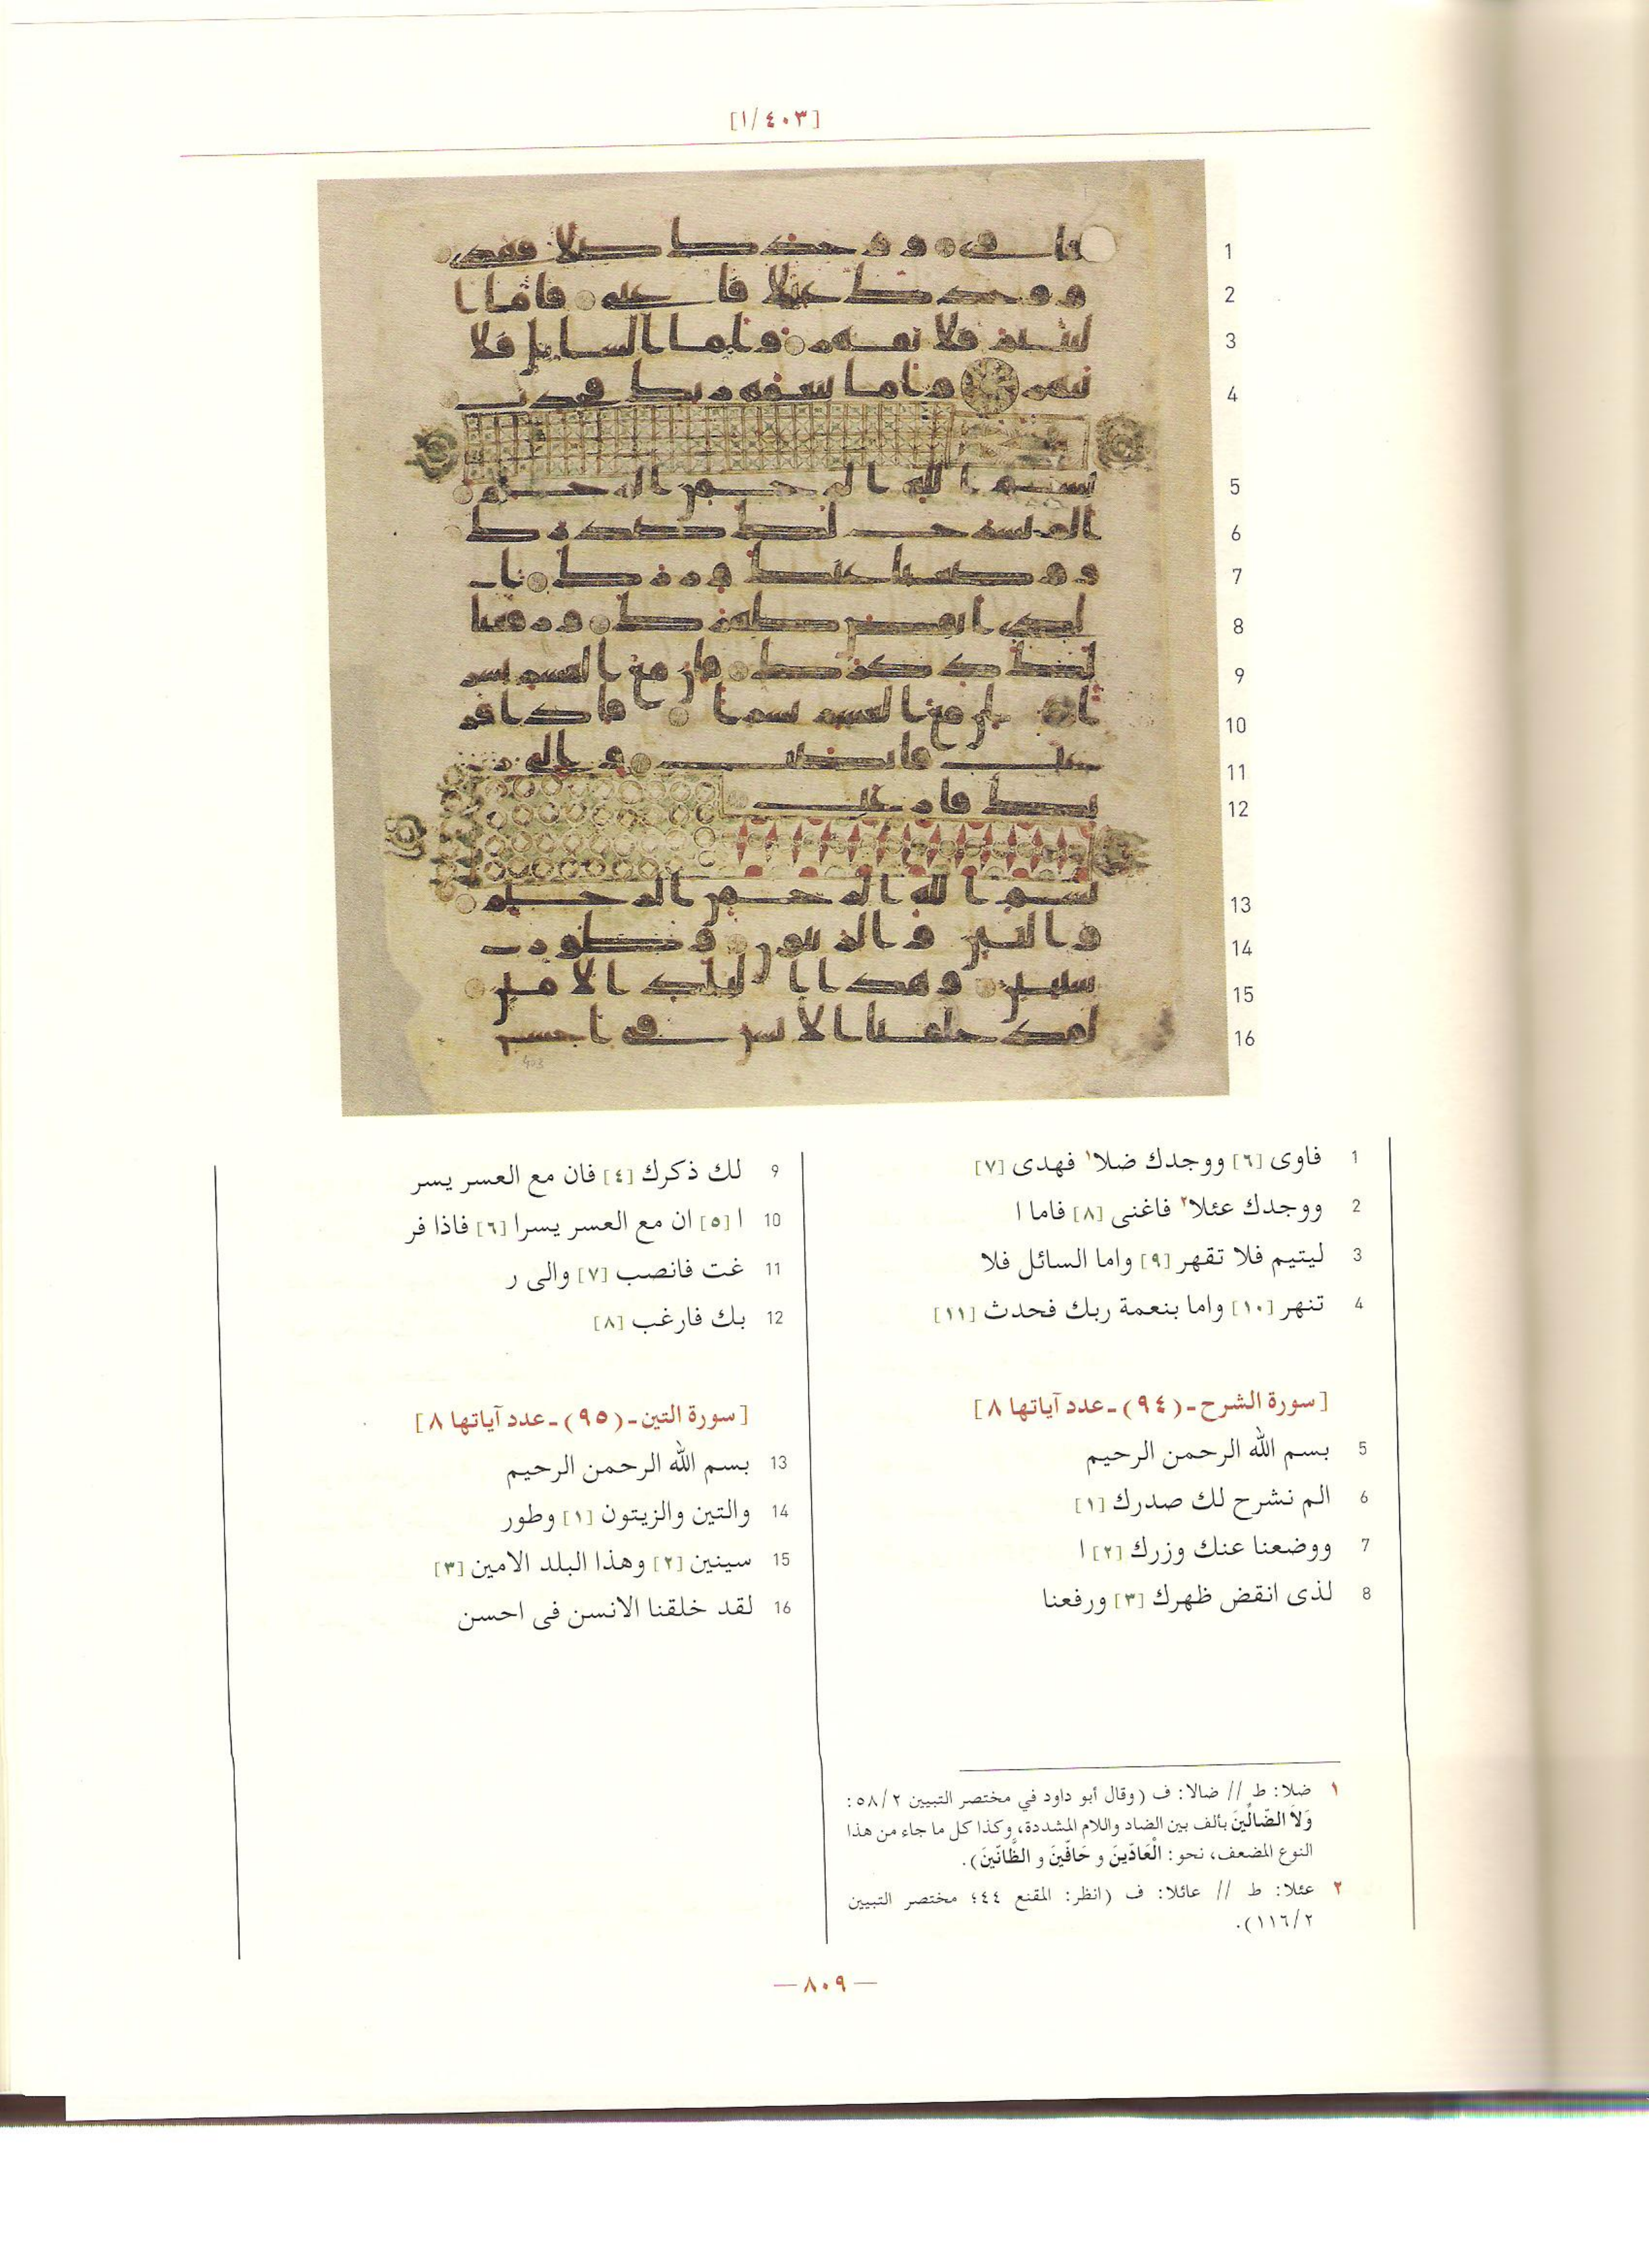 [١/٤٠٣]
1
2
3
4
5
6
7
8
9
10
11
12
13
14
15
16
403
1 فاوى [٦] ووجدك ضلا١ فهدى [٧]
2 ووجدك عئلا٢ فاغنى [٨] فاما ا
3 ليتيم فلا تقهر [٩] واما السائل فلا
4 تنهر [١٠] واما بنعمة ربك فحدث [١١]
[سورة الشرح-(٩٤)-عدد آياتها ٨]
5 بسم الله الرحمن الرحيم
6 الم نشرح لك صدرك [١]
7 ووضعنا عنك وزرك [٢] ا
8 لذى انقض ظهرك [٣] ورفعنا
9 لك ذكرك [٤] فان مع العسر يسر
10 ا [٥] ان مع العسر يسرا [٦] فاذا فر
11 غت فانصب [٧] والى ر
12 بك فارغب [٨]
[سورة التين-(٩٥)-عدد آياتها ٨]
13 بسم الله الرحمن الرحيم
14 والتين والزيتون [١] وطور
15 سينين [٢] وهذا البلد الامين [٣]
16 لقد خلقنا الانسن فى احسن
١ ضلا: ط // ضالا: ف (وقال أبو داود في مختصر التبيين ٥٨/٢:
وَلاَ الضّالِّينَ بألف بين الضاد واللام المشددة، وكذا كل ما جاء من هذا
النوع المضعف، نحو: الْعَادّينَ و حَافّينَ و الظَّانّينَ).
٢ عئلا: ط // عائلا: ف (انظر: المقنع ٤٤؛ مختصر التبيين
١١٦/٢).
— ٨٠٩ —